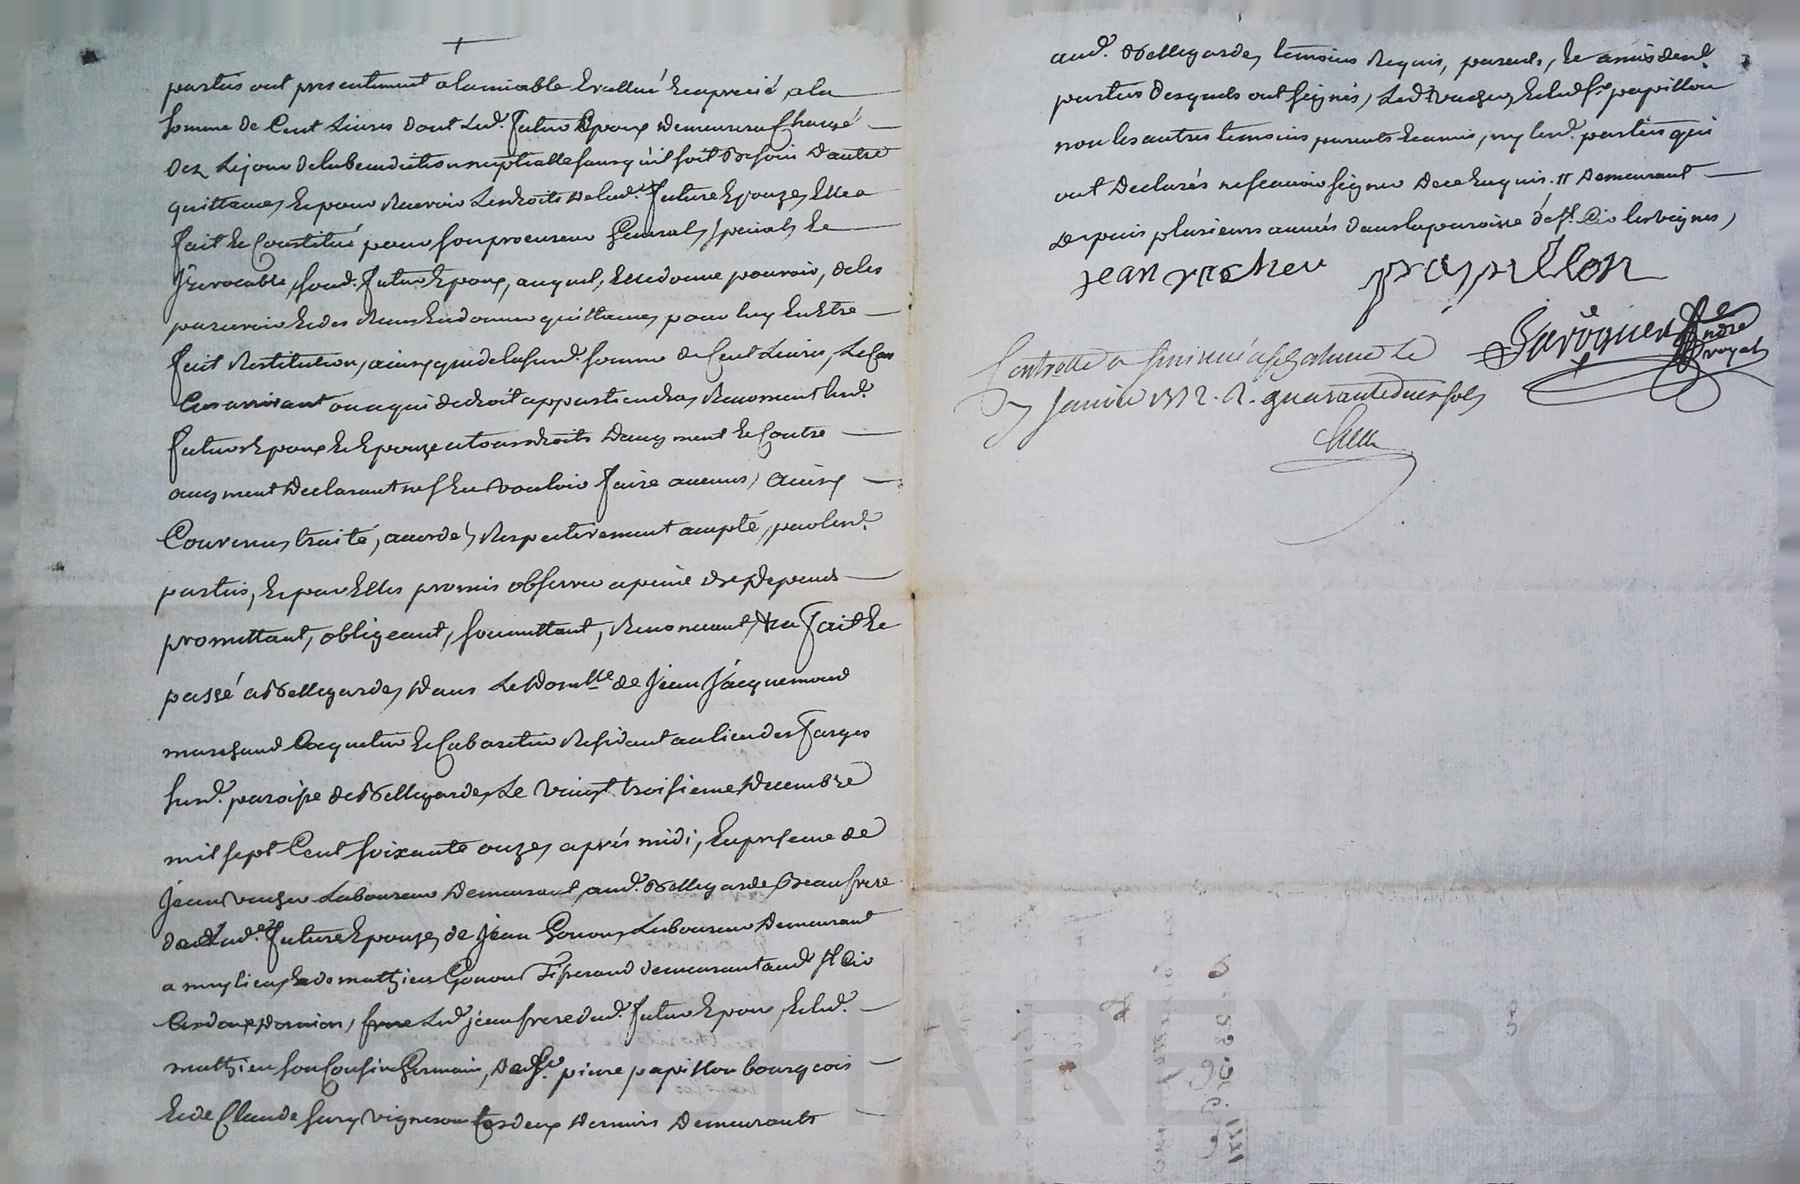 parties ont presentement alamiable Evallué Eapretié, ala
somme de Cent Livres dont Led. futur Epoux Demeurera Chargé
dez Lejour delabenediction nuptialle sans quil soit Besoin Dautre
quittance, Et pour Recevoir Lesdroits Delad. future Epouze, Elle a
fait Et Constitué pour son procureur General, special, Et
Jrevocable, sond. futur Epoux, auquel, Elle donne pouvoir, deles
percevoir Et des Reçus En donner quittances, pour luy En Etre
fait Restitution, ainsy que delasusd. somme de Cent Livres, Le Cas
Cas arrivant ou aqui dedroit appartiendra, Renoncent lesd.
futurs Epoux Et Epouze atous droits Daugment Et Contre
augment Declarant nes En vouloir faire aucuns, Ainsy
Convenu, traité, accordé, Respectivement accepté, par lesd.
parties, Et par Elles promis observer apeine de Depends
promettant, obligeant, soumettant, Renonceant, &ca fait Et
passé a Bellegarde, Dans Le Domlle de Jean Jacquemond
marchand Coquetier Et Cabaretier Residant au lieu des Farges
susd. paroisse de Bellegarde, Le vingt troisieme Decembre
mil sept Cent soixante onze, après midi, En presence de
Jean vacher Laboureur Demeurant aud. Bellegarde Beaufrere
de Lad. future Epouze, de Jean Gonon, Laboureur Demeurant
a Et de mathieu Gonon Tisserand demeurant aud. st Cir
Lesdeux Derniers, Led. jean frere dud. futur Epoux, Et Led.
mathieu son Cousin Germain, De sr. pierre papillon bourgeois
Et de Claude sury vigneron Lesdeux Derniers Demeurants
aud. Bellegarde, temoins Requis, parents, Et amis desd.
parties Lesquels ont signés, Led. vacher, Et led. sr. papillon
non les autres temoins parents Et amis, ny lesd. parties qui
ont Declarés ne scavoir signer Dece Enquis. rr Demeurant
depuis plusieurs années dans la paroisse de st. Cir les vignes,
jean vacher papillon
andré royal
Controllé a st Galmier Le
Janvier 1772. R. quarante deux sols